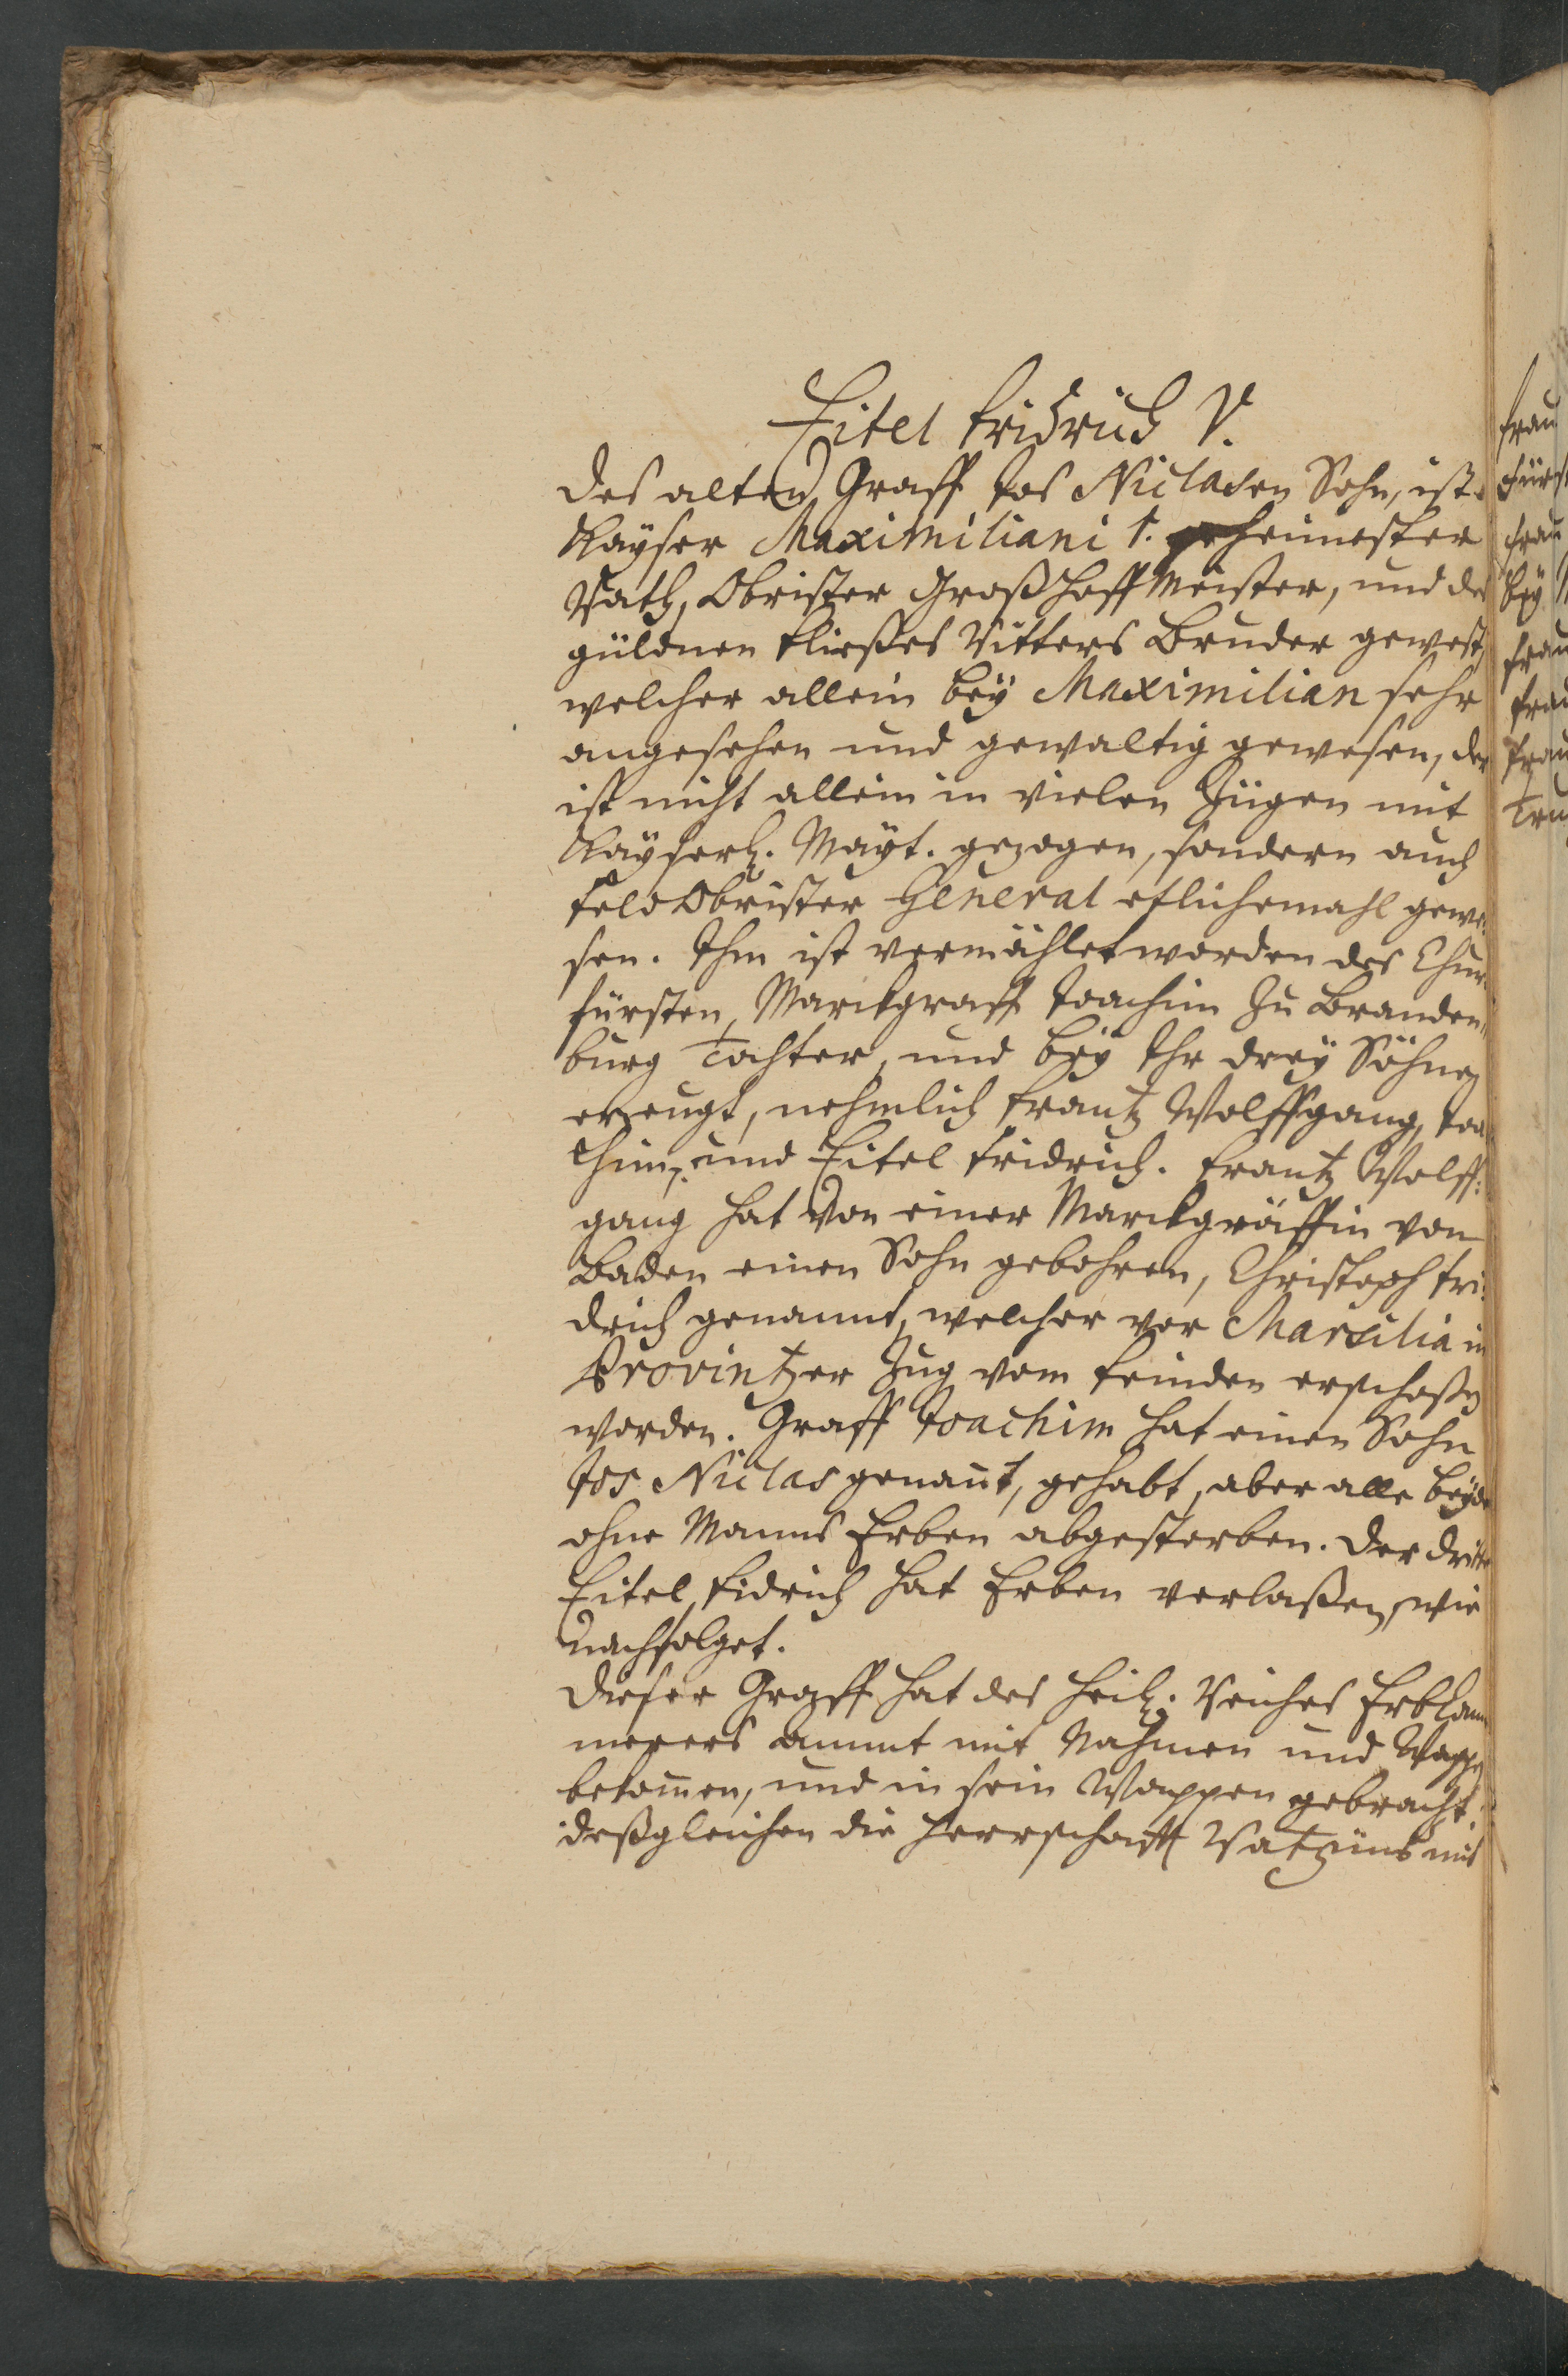 Eitel Fridrich V.
des alten Graff Jos Niclasen Sohn, ist
Kayser Maximiliani 1. geheimester
Rath, Obrister Großhoffmeister, und des
güldnen Fließes Ritters Bruder gewest,
welcher allein bey Maximilian sehr
angesehen und gewaltig gewesen, der
ist nicht allein in vielen Zügen mit
Kayserl. Mayt. gezogen, sondern auch
Feld Obrister General etlichemahl gewe-
sen. Ihm ist vermählet worden des Chur-
fürsten, Marckgraff Joachim zu Branden-
burg Tochter, und bey Ihr drey Söhne
erzeugt, nehmlich Frantz Wolffgang, Joa-
chim, und Eitel Fridrich. Frantz Wolff-
gang hat von einer Marckgräffin von
Baden einen Sohn gebohren, Christoph Fri-
drich genannt, welcher vor Marsilia in
Provintzer Zug vom Feinden erschoßen
worden. Graff Joachim hat einen Sohn
Jos Niclas genannt, gehabt, aber alle beyde
ohne Manns Erben abgestorben. Der dritte
Eitel Fidrich hat Erben verlaßen, wie
nachfolget.
Dieser Graff hat des Heil. Reiches Erbkam-
merers Ammt mit Nahmen und Wappen
bekommen, und in sein Wappen gebracht,
deßgleichen die Herrschafft Ratzüns mit
Frau
Fürst
Frau
bey
Frau
Frau
Frau